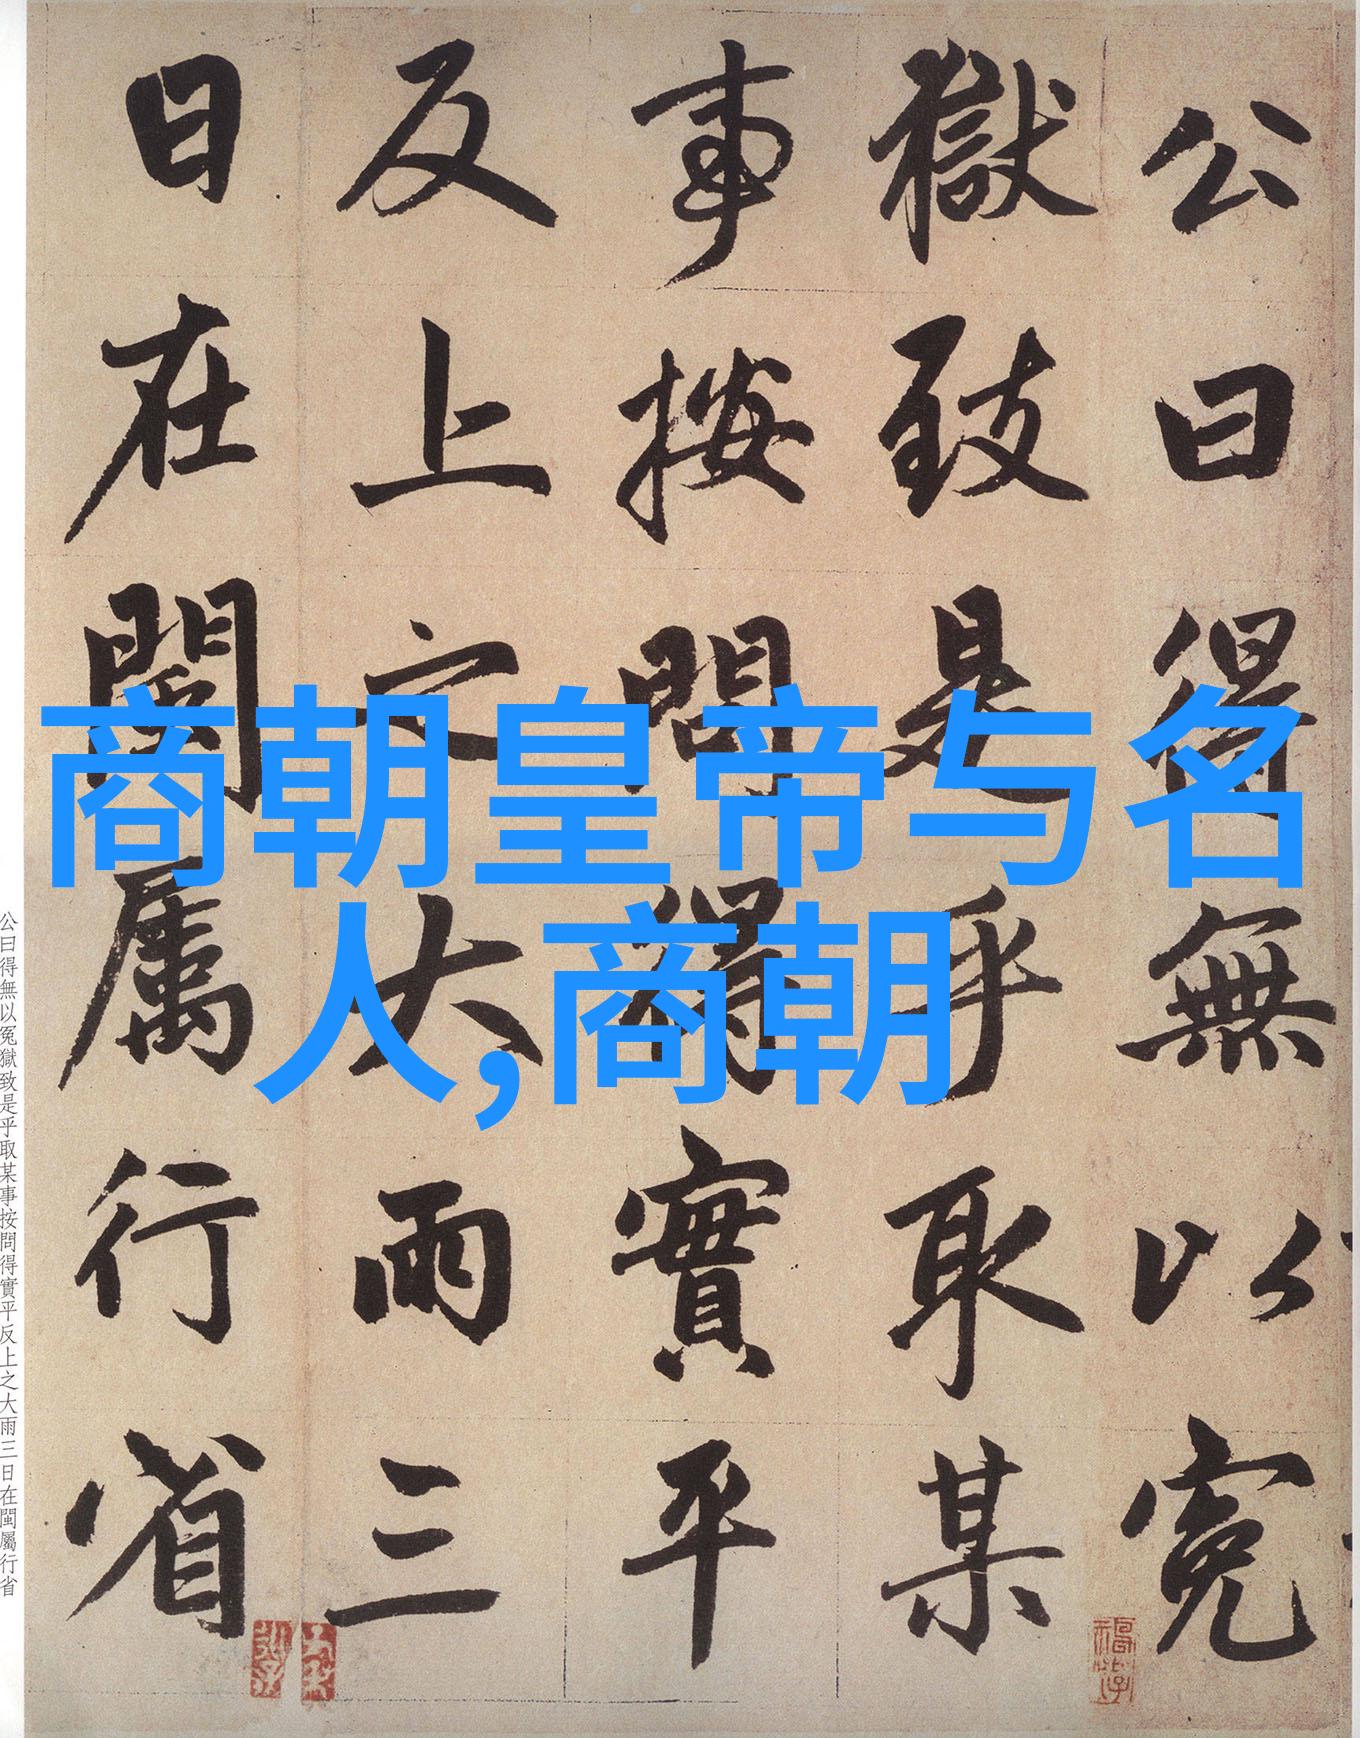 公曰得無以冤
獄致是乎取某
事按問得實平
反上之大雨三
日在閩属行省
商朝皇帝与名
人,商朝
公曰得無以冤獄致是乎取某事按問得實平反上之大雨三日在閩屬行省